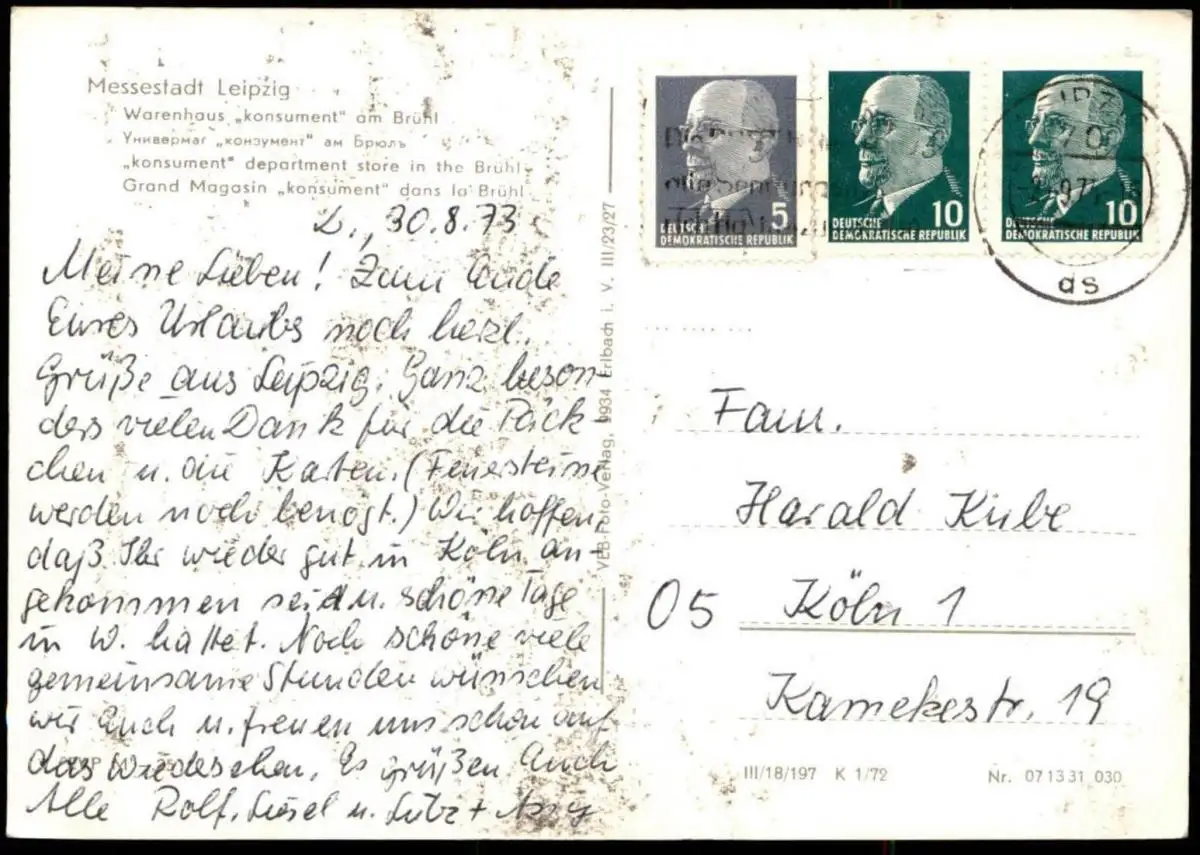 Messestadt Leipzig
Warenhaus „konsument" am Brühl
Универмаг „консумент" ам Брюль
„konsument" department store in the Brühl
Grand Magasin „konsument" dans la Brühl
L., 30.8.73
Meine Lieben! Zum Ende
Eures Urlaubs noch herzl.
Grüße aus Leipzig. Ganz beson-
ders vielen Dank für die Päck
chen u. die Karten. (Feuersteine
werden noch benögt.) Wir hoffen,
daß Ihr wieder gut in Köln an-
gekommen seid u. schöne Tage
in W. hattet. Noch schöne viele
gemeinsame Stunden wünschen
wir Euch u. freuen uns schon auf
das Wiedesehen. Es grüßen Euch
Alle Rolf, Liesel u. Lutz +
VEB Foto-Verlag, 9934 Erlbach i. V. III/23/27
5
DEUTSCHE
DEMOKRATISCHE REPUBLIK
10
DEUTSCHE
DEMOKRATISCHE REPUBLIK
10
DEUTSCHE
DEMOKRATISCHE REPUBLIK
as
Fam.
Harald Kube
05 Köln 1
Kamekestr. 19
III/18/197 K 1/72
Nr. 07 13 31 030